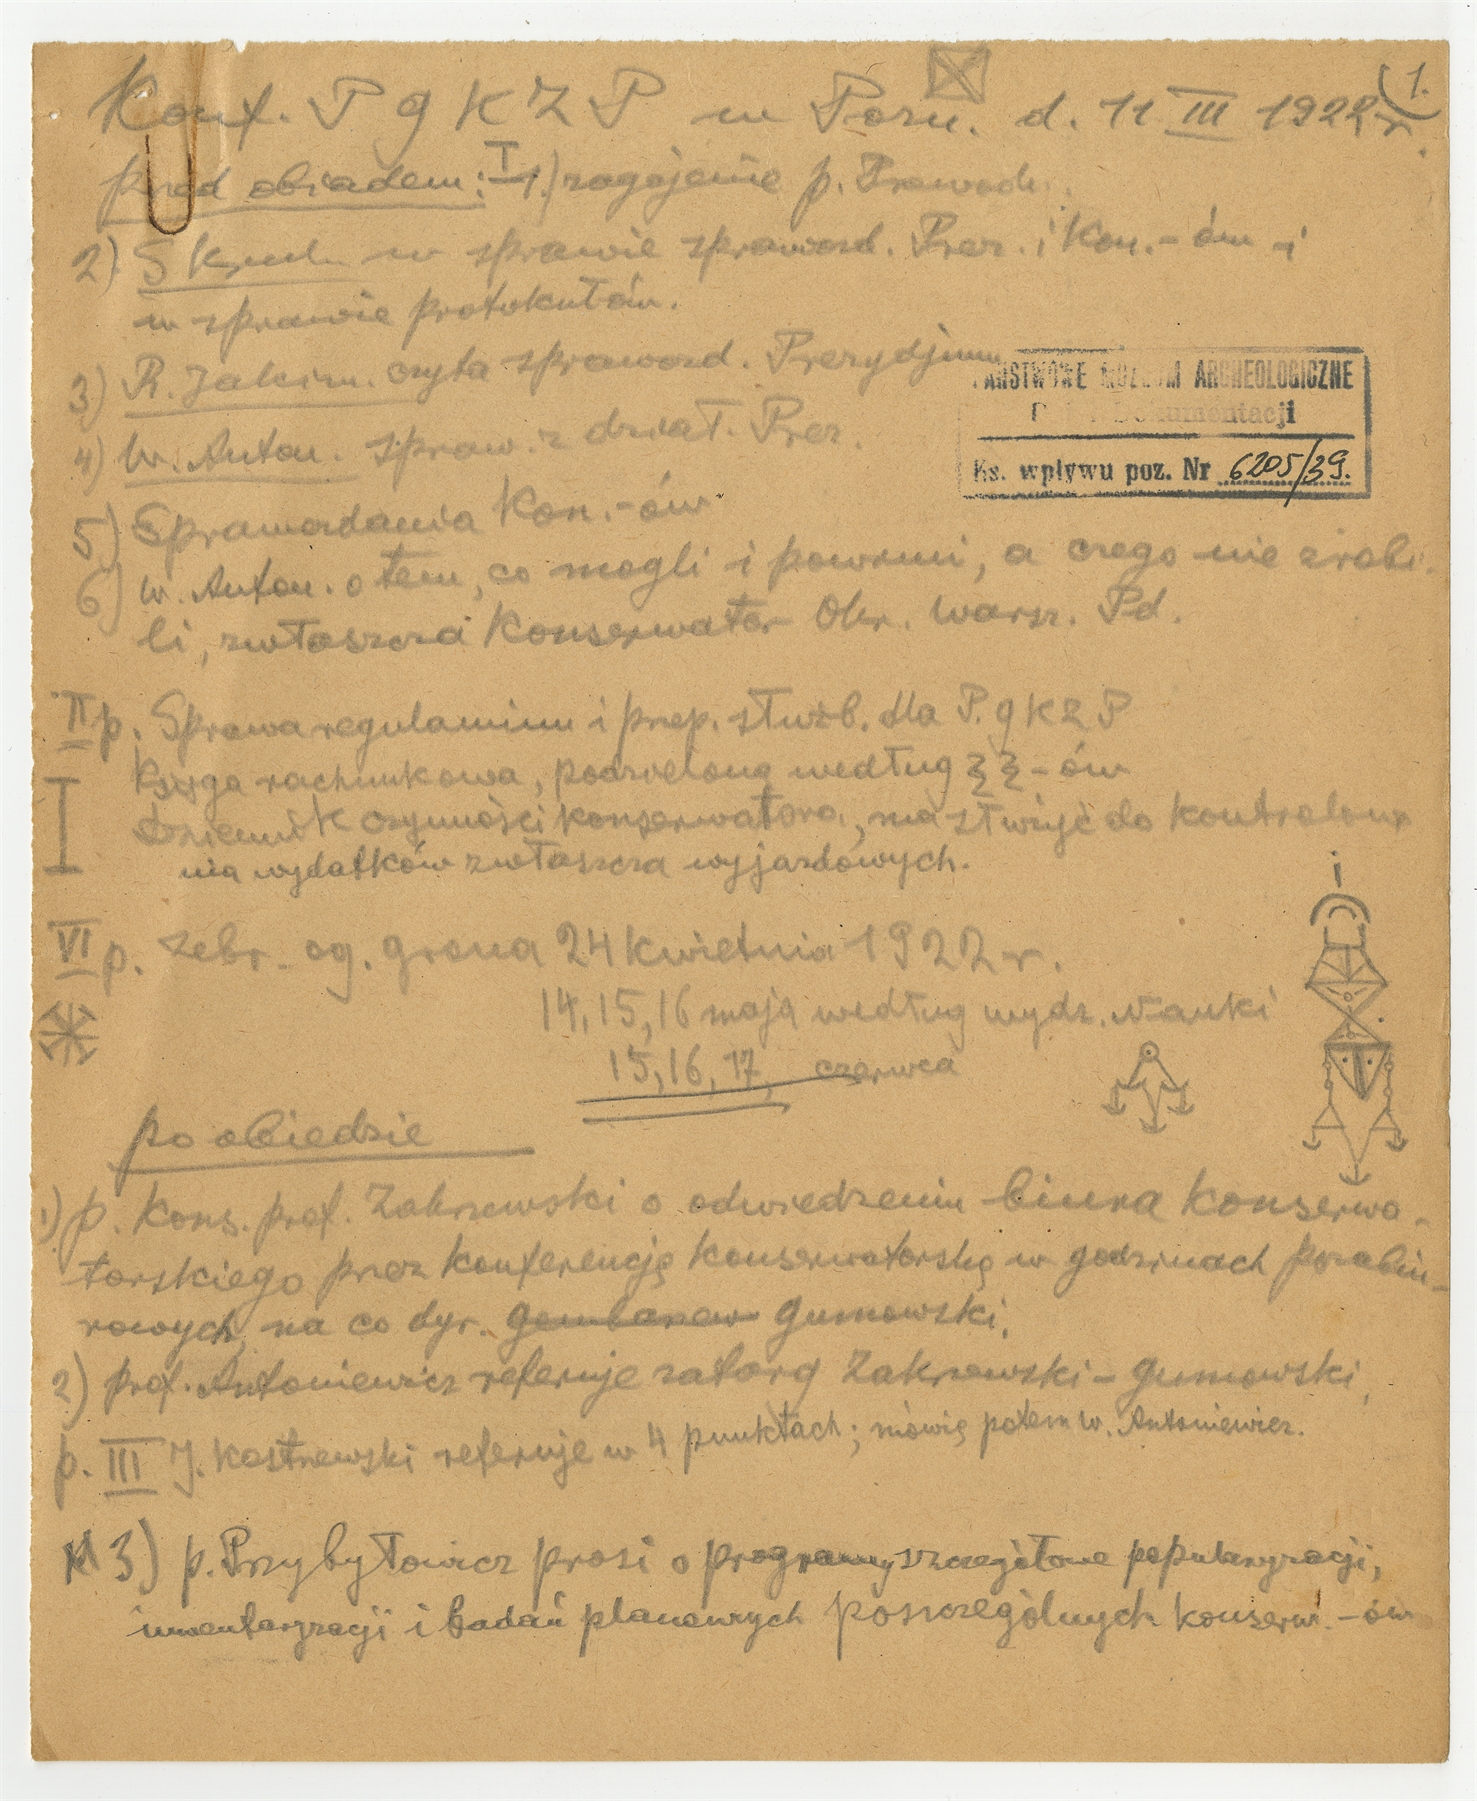 1.
Konf. P G K Z P w Pozn. d. 11 III 1922 r.
przed obiadem: I 1.) zagajenie p. Przewodn.
2) S Kruk. w sprawie sprawozd. Prez. i Kon.-ów i
w sprawie protokułów.
3) R. Jakim. czyta sprawozd. Prezydjum
4) W. Anton. spraw. z dział. Prez.
PAŃSTWOWE MUZEUM ARCHEOLOGICZNE
Dział Dokumentacji
Ks. wpływu poz. Nr 6205/39.
5) Sprawozdania Kon.-ów
6) W. Anton. o tem, co mogli i powinni, a czego nie zrobi-
li, zwłaszcza Konserwator Okr. Warsz. Pd.
II p. Sprawa regulaminu i przep. służb. dla P. G K Z P
Księga rachunkowa, podzielona według §§-ów
dziennik czynności konserwatora, ma służyć do kontrolowa
nia wydatków zwłaszcza wyjazdowych.
VI p. Zebr. og. grona 24 kwietnia 1922 r.
14, 15, 16 maja według wydz. Nauki
15, 16, 17, czerwca
po obiedzie
1) p. Kons. prof. Zakrzewski o odwiedzeniu biura Konserwa-
torskiego przez konferencję konserwatorską w godzinach pozabiu-
rowych, na co dyr. Gumowski.
2) prof. Antoniewicz referuje zatarg Zakrzewski - Gumowski.
p. III J. Kostrzewski referuje w 4 punktach; mówię potem W. Antoniewicz.
3) p. Przybyłowicz prosi o programy szczegółowe popularyzacji,
inwentaryzacji i badań planowych poszczególnych konserw.-ów